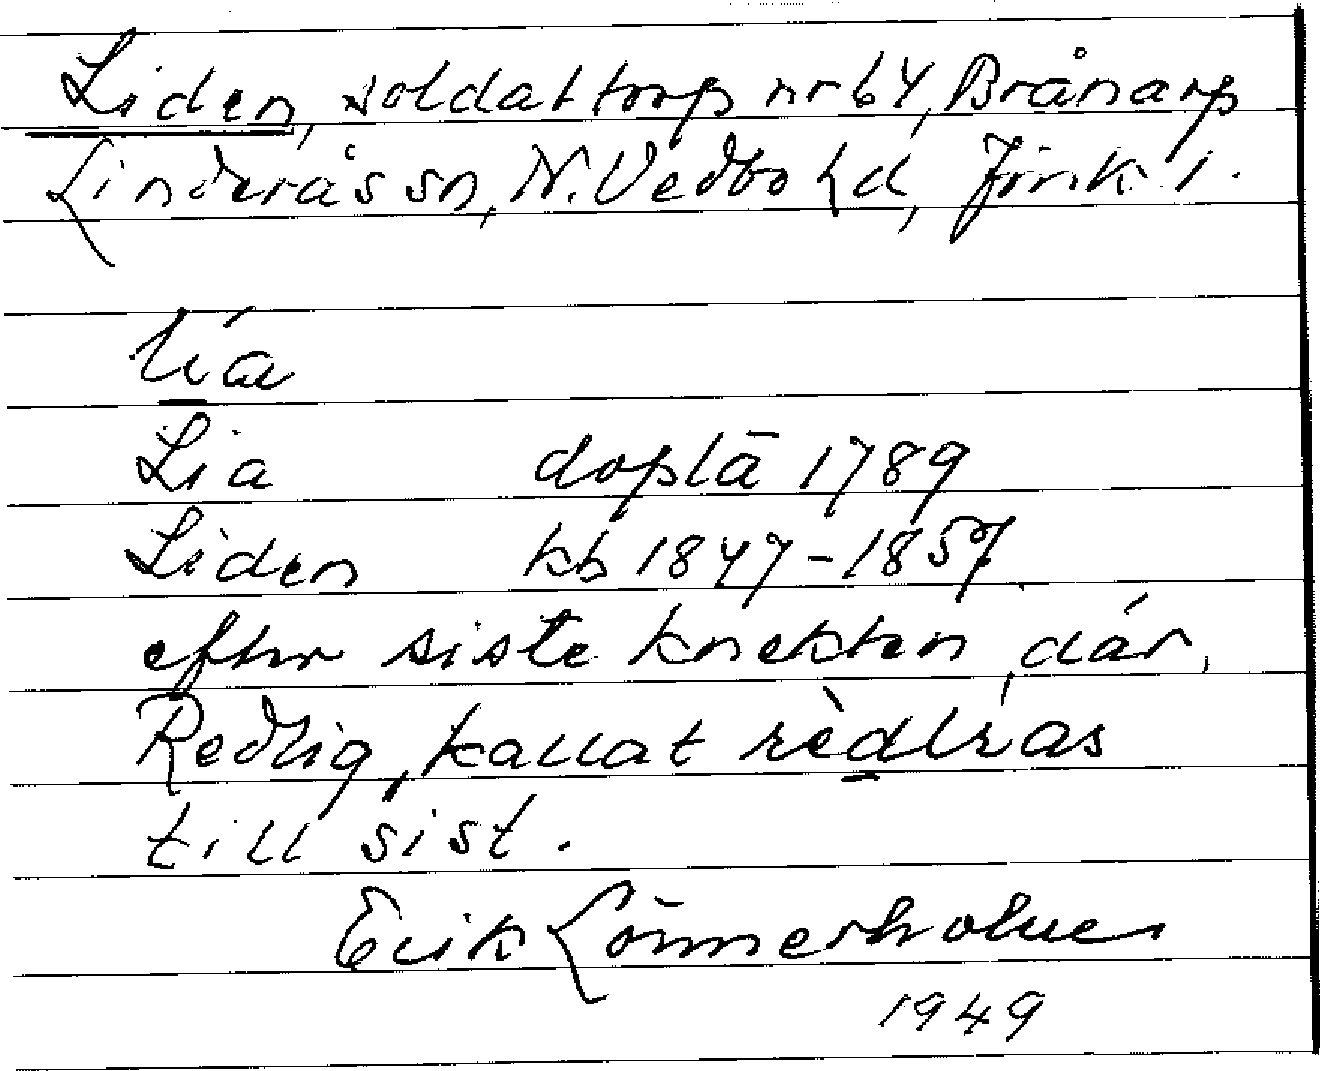 Liden, soldattorp nr 64, Brånarp
Linderås sn, N. Vedbo hd, Jönk. l.
lia
Lia doplä 1789
Liden kb 1847-1857
efter siste knekten där,
Redlig, kallat rèdlias
till sist.
Erik Lönnerholm
1949